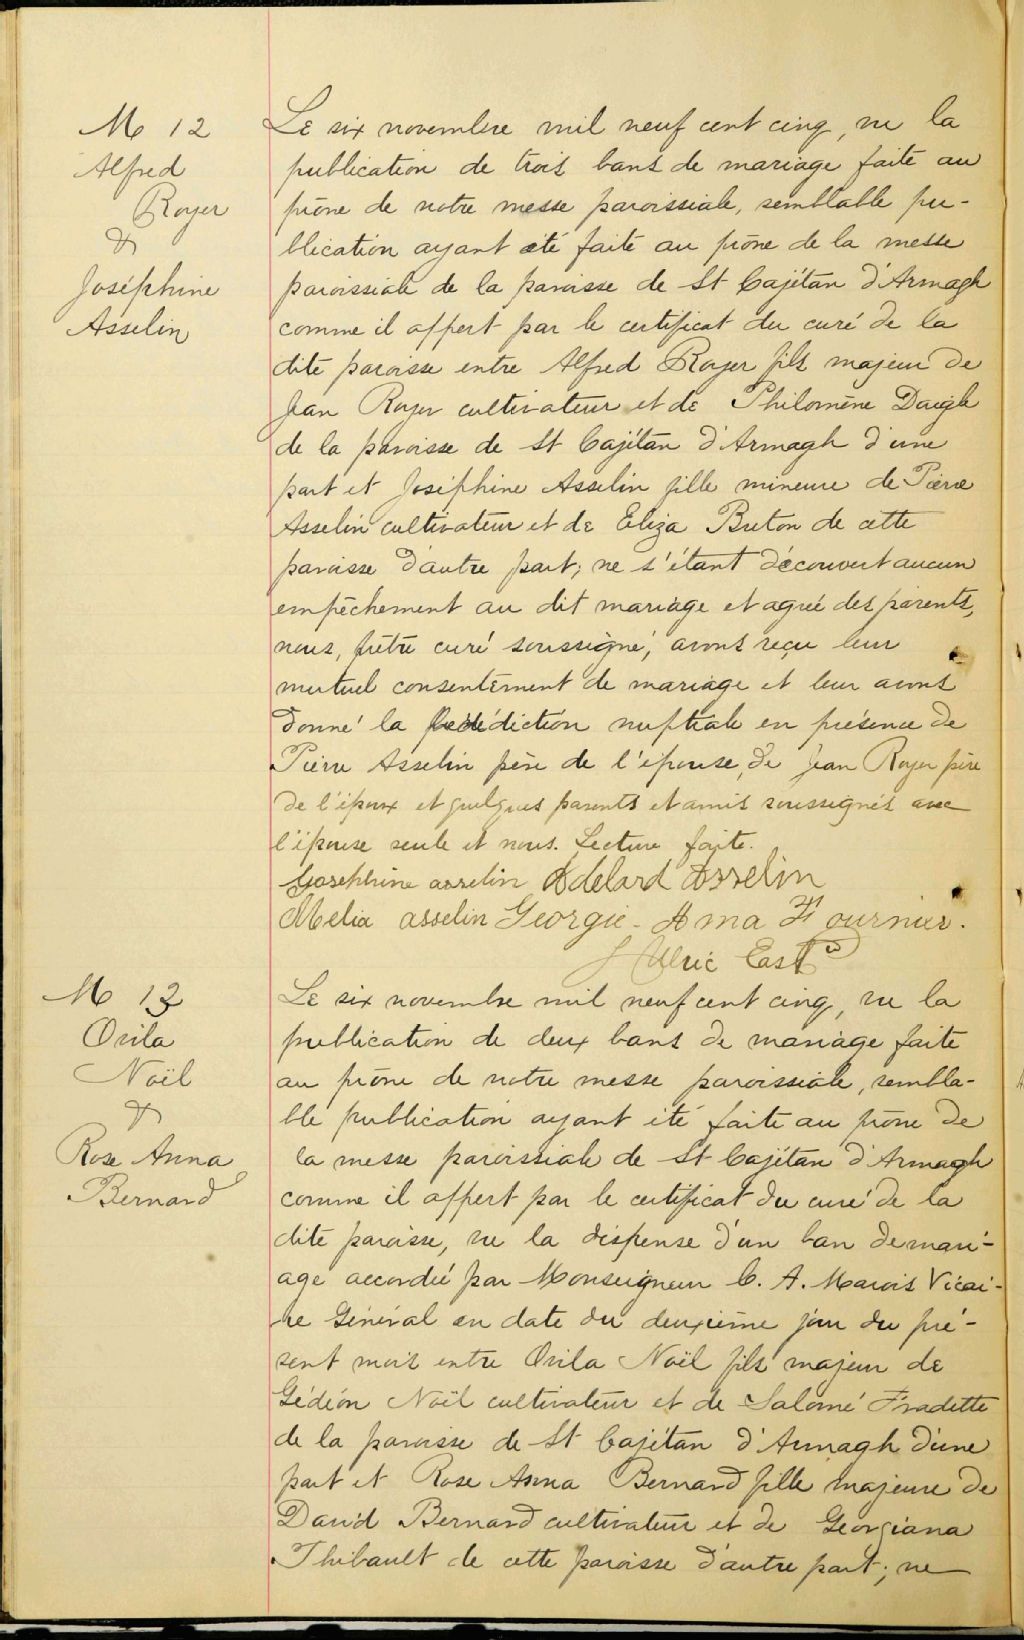 M 12
Alfred
Royer
&
Joséphine
Asselin
Le six novembre mil neuf cent cinq, vu la
publication de trois bans de mariage faite au
prône de notre messe paroissiale, semblable pu-
blication ayant été faite au prône de la messe
paroissiale de la paroisse de St Cajétan d'Armagh
comme il appert par le certificat du curé de la
dite paroisse entre Alfred Royer fils majeur de
Jean Royer cultivateur et de Philomène Daigle
de la paroisse de St Cajétan d'Armagh d'une
part et Joséphine Asselin fille mineure de Pierre
Asselin cultivateur et de Eliza Breton de cette
paroisse d'autre part; ne s'étant découvert aucun
empêchement au dit mariage et agréé des parents,
nous, prêtre curé soussigné, avons reçu leur
mutuel consentement de mariage et leur avons
donné la bénédiction nuptiale en présence de
Pierre Asselin père de l'épouse, de Jean Royer père
de l'époux et quelques parents et amis soussignés avec
l'épouse seule et nous. Lecture faite.
Josephine asselin Adelard Asselin
Melia asselin Georgie-Ama Fournier.
J Ulric East Ptre
M 13
Ovila
Noël
&
Rose Anna
Bernard
Le six novembre mil neuf cent cinq, vu la
publication de deux bans de mariage faite
au prône de notre messe paroissiale, sembla-
ble publication ayant été faite au prône de
la messe paroissiale de St Cajétan d'Armagh
comme il appert par le certificat du curé de la
dite paroisse, vu la dispense d'un ban de mari-
age accordée par Monseigneur C. A. Marois Vicai-
re Général en date du deuxième jour du pré-
sent mois entre Ovila Noël fils majeur de
Gédéon Noël cultivateur et de Salomé Fradette
de la paroisse de St Cajétan d'Armagh d'une
part et Rose Anna Bernard fille majeure de
David Bernard cultivateur et de Georgiana
Thibault de cette paroisse d'autre part; ne